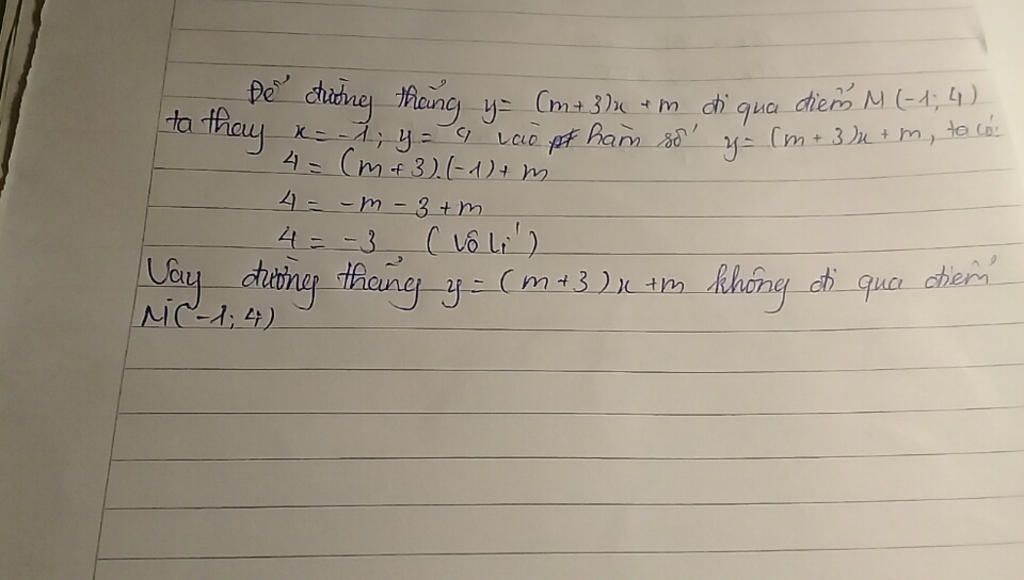 Để đường thẳng y = (m+3)x + m đi qua điểm M(-1; 4)
ta thay x = -1; y = 4 vào hàm số y = (m+3)x + m, ta có:
4 = (m+3).(-1) + m
4 = -m - 3 + m
4 = -3 (vô lí)
Vậy đường thẳng y = (m+3)x + m không đi qua điểm
M(-1; 4)